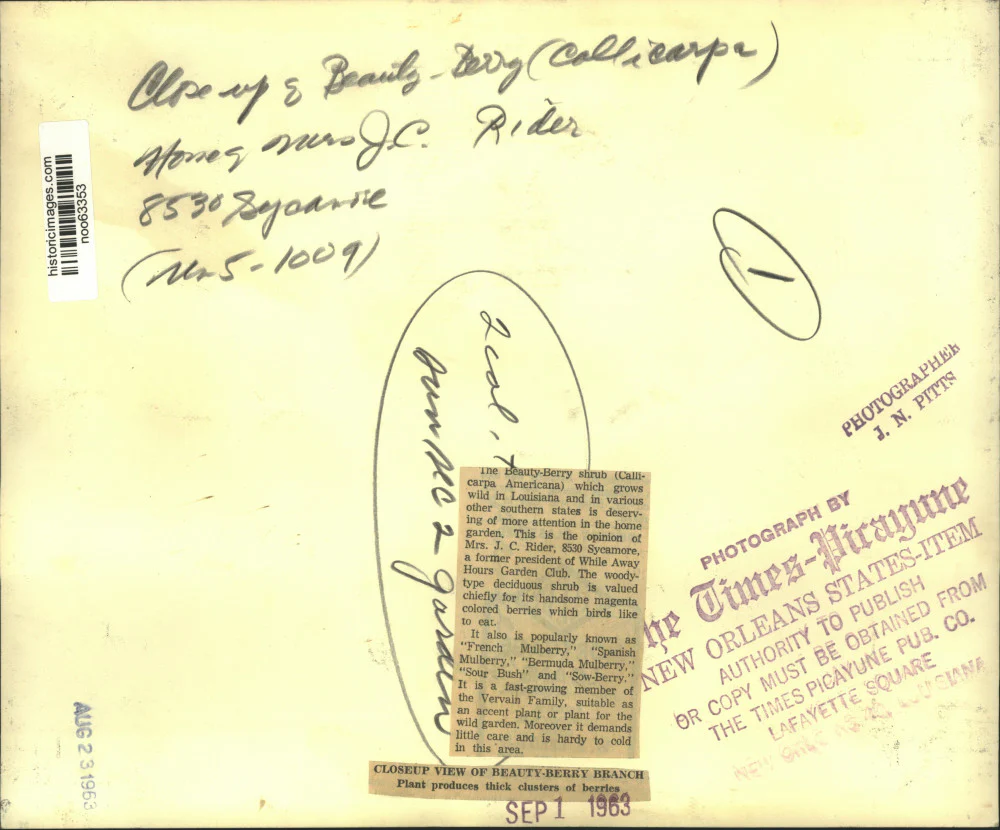 Close up of Beauty-Berry (Callicarpa)
Home of Mrs J.C. Rider
8530 Sycamore
(Un 5-1009)
historicimages.com
noo63353
1
2 col.
Sun Sec 2 garden
The Beauty-Berry shrub (Calli-
carpa Americana) which grows
wild in Louisiana and in various
other southern states is deserv-
ing of more attention in the home
garden. This is the opinion of
Mrs. J. C. Rider, 8530 Sycamore,
a former president of While Away
Hours Garden Club. The woody-
type deciduous shrub is valued
chiefly for its handsome magenta
colored berries which birds like
to eat.
It also is popularly known as
"French Mulberry," "Spanish
Mulberry," "Bermuda Mulberry,"
"Sour Bush" and "Sow-Berry."
It is a fast-growing member of
the Vervain Family, suitable as
an accent plant or plant for the
wild garden. Moreover it demands
little care and is hardy to cold
in this area.
CLOSEUP VIEW OF BEAUTY-BERRY BRANCH
Plant produces thick clusters of berries
SEP 1 1963
AUG 23 1963
PHOTOGRAPHER
J. N. PITTS
PHOTOGRAPH BY
The Times-Picayune
NEW ORLEANS STATES-ITEM
AUTHORITY TO PUBLISH
OR COPY MUST BE OBTAINED FROM
THE TIMES PICAYUNE PUB. CO.
LAFAYETTE SQUARE
NEW ORLEANS, LOUISIANA